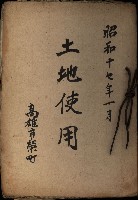 昭和十七年一月
土地使用
高雄市榮町